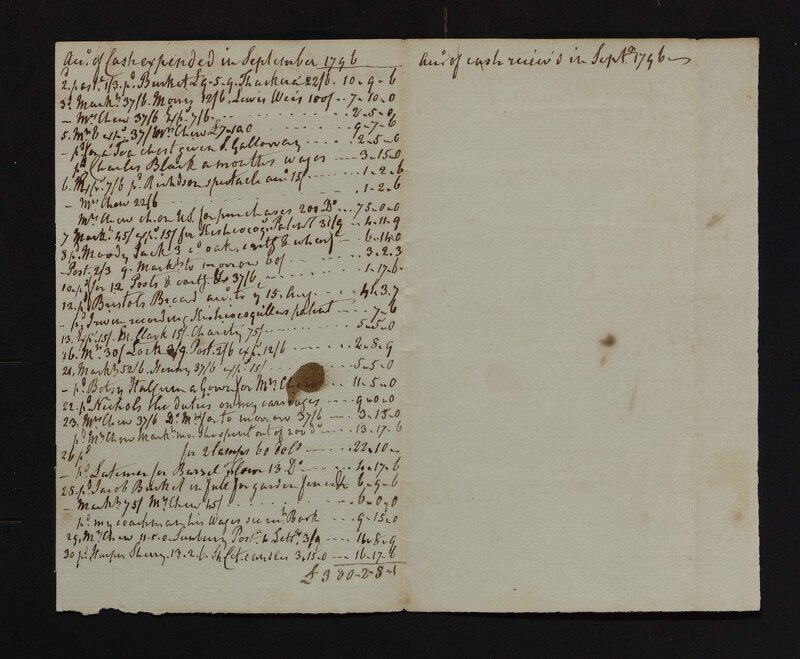 Acct. of Cash expended in September 1796
2. p. 1/3. pd. Burket £9-5-9. Thackera 22/6 10-9-6
3d. Markt. 37/6. Morris 12/6. Lewis Weis 100/ -- 7-10-0
- Mrs Chew 37/6 Exps. 7/6 -- 2-5-0
5. Mr B 37/6 Mrs Chew £7-10-0 9-7-6
- pd. for a Tea chest given S. Galloway 2-5-6
pd. Charles Black a months wages 3-15-0
6. Exps. 7/6 pd. Richdson spectacle acct. 15/ 1-2-6
- Mrs Chew 22/6 1-2-6
Mrs Chew ch. on U.S. for purchases 200 Do. 75-0-0
7 Markt. 45/ exps. 15/ for Kishicoqs. Patent 31/9 4-11-9
8 pd. Moody Jack 3 cd. oak. cartg & wharf 6-14-0
- Post. 2/3 9. Markt. to morrow 60/ 3-2-3
10. pd. for 12 Posts & cartg. 37/6 1-17-6
12. pd. Bristols Bread acct. to ye 15. Augt. 4-3-7
- pd. Irwin recording Kishicoquillas patent 7-6
13. Exps. 15/. M. Clark 15/ Charity 75/ 5-5-0
16. Mrs 30/ Lock 3/9. Post. 2/6 exps. 12/6 2-8-9
21, Markt. 52/6. Henry 37/6 exps. 15/ 5-5-0
- pd. Betsy Hall for a Gown for Mrs Chew 11-5-0
22. pd. Nichols the duties on my carriages 9-0-0
23. Mrs Chew 37/6 Do. Mrs for to morrow 37/6 3-15-0
pd. Mrs Chew Markt. mo. she spent out of 200 Ds. 13-17-6
26 pd. for 2 lamps 60 dolls 22-10-
- pd. Latimer for Barrel flour 13 Ds 4-17-6
28. pd. Jacob Burket in full for garden fence 6-9-6
- Markt. 75/ Mrs Chew 45/ 6-0-0
pd. my coachman his Wages see rect. Book 9-15-0
29, Mrs Chew 11-5-0 Sunbury Post. & Letts. 3/9 11-8-9
30 pd. Harper Sherry. 13-2-6. candles 3-15-0 16-17-6
£ 300-2-8-1
Acct. of cash receiv'd in Septr. 1796